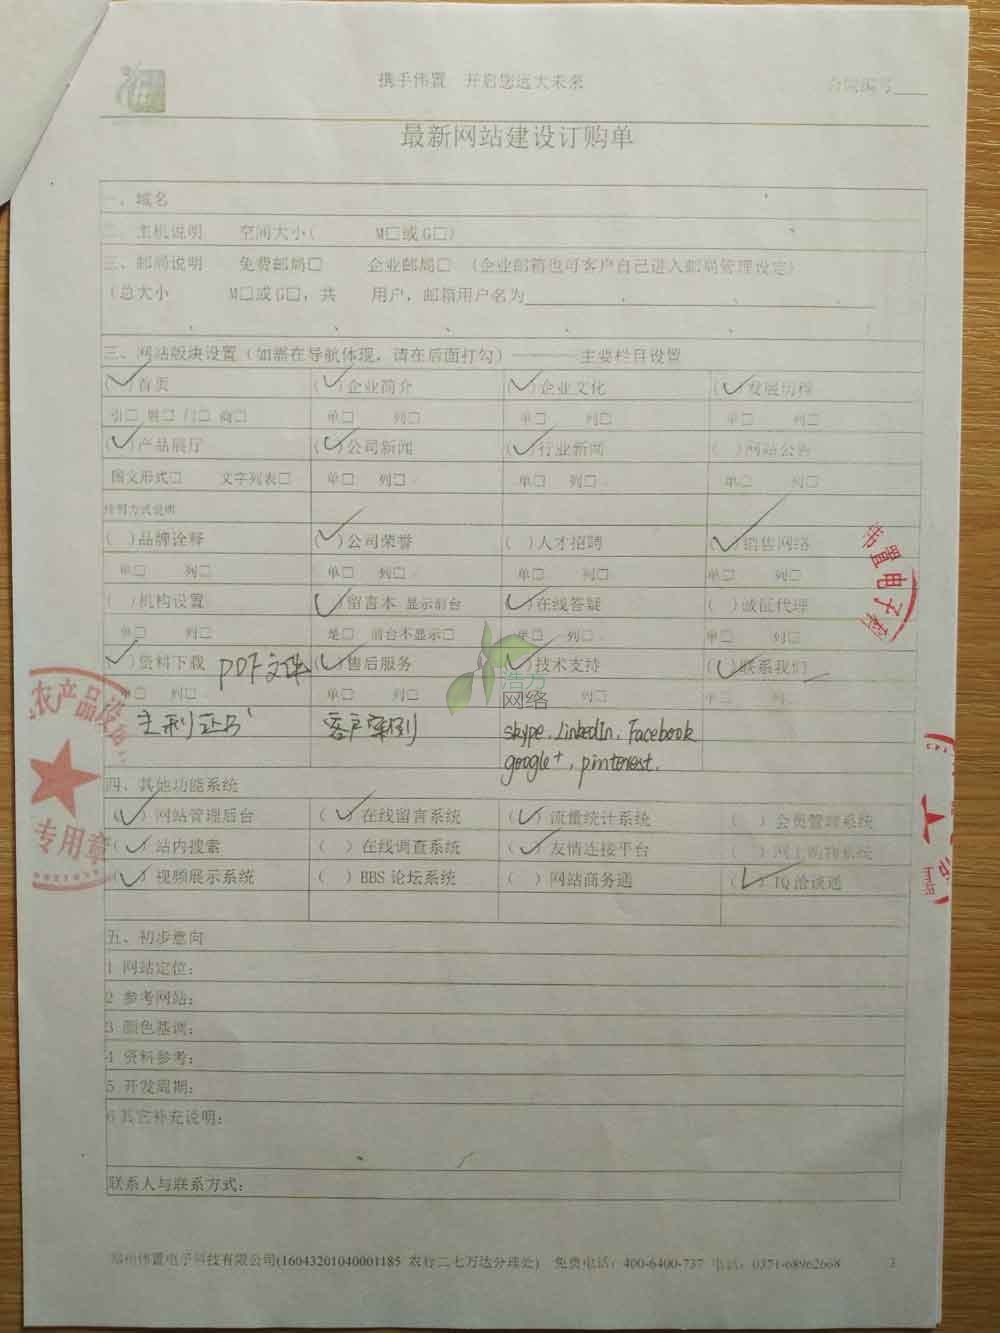 携手伟置 开启您远大未来 合同编号____
最新网站建设订购单
一、域名
二、主机说明 空间大小( M□或G□)
三、邮局说明 免费邮局□ 企业邮局□ (企业邮箱也可客户自己进入邮局管理设定)
(总大小 M□或G□,共 用户,邮箱用户名为
三、网站版块设置(如需在导航体现,请在后面打勾)————主要栏目设置
(✓)首页 (✓)企业简介 (✓)企业文化 (✓)发展历程
引□ 展□ 门□ 商□ 单□ 列□ 单□ 列□ 单□ 列□
(✓)产品展厅 (✓)公司新闻 (✓)行业新闻 ( )网站公告
图文形式□ 文字列表□ 单□ 列□ 单□ 列□ 单□ 列□
排列方式说明
( )品牌诠释 (✓)公司荣誉 ( )人才招聘 (✓)销售网络
单□ 列□ 单□ 列□ 单□ 列□ 单□ 列□
( )机构设置 (✓)留言本 显示前台 (✓)在线答疑 ( )诚征代理
单□ 列□ 是□ 前台不显示□ 单□ 列□ 单□ 列□
(✓)资料下载 PDF文件 (✓)售后服务 (✓)技术支持 (✓)联系我们
□ 列□ 单□ 列□ 列□ 单□ 列□
客户案例 skype、LinkedIn、Facebook
google+、pinterest.
四、其他功能系统
(✓)网站管理后台 (✓)在线留言系统 (✓)流量统计系统 ( )会员管理系统
(✓)站内搜索 ( )在线调查系统 (✓)友情连接平台 ( )网上购物系统
(✓)视频展示系统 ( )BBS 论坛系统 ( )网站商务通 (✓)TQ洽谈通
五、初步意向
1 网站定位:
2 参考网站:
3 颜色基调:
4 资料参考:
5 开发周期:
6 其它补充说明:
联系人与联系方式:
郑州伟置电子科技有限公司(16043201040001185 农行二七万达分理处) 免费电话:400-6400-737 电话:0371-68962668 3
伟置电子科
农产品设备
专用章
浩方
网络